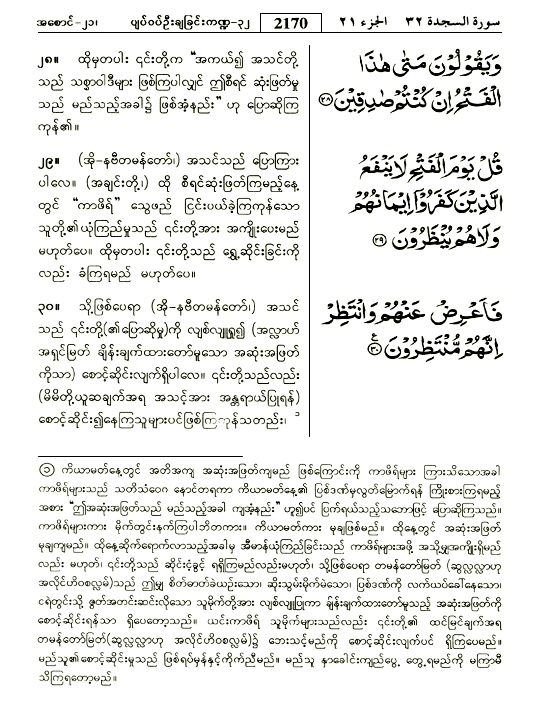 အစောင်-၂၁၊ ပျပ်ဝပ်ဦးချခြင်းကဏ္ဍ-၃၂ 2170 الجزء ٢١ سورة السجدة ٣٢
၂၈။ ထိုမှတပါး ၎င်းတို့က "အကယ်၍ အသင်တို့
သည် သစ္စာဝါဒီများ ဖြစ်ကြပါလျှင် ဤစီရင် ဆုံးဖြတ်မှု
သည် မည်သည့်အခါ၌ ဖြစ်အံ့နည်း" ဟု ပြောဆိုကြ
ကုန်၏။
وَيَقُوْلُوْنَ مَتٰى هٰذَا
الْفَتْحُ اِنْ كُنْتُمْ صٰدِقِيْنَ ﴿٢٨﴾
၂၉။ (အို-နဗီတမန်တော်၊) အသင်သည် ပြောကြား
ပါလေ။ (အချင်းတို့၊) ထို စီရင်ဆုံးဖြတ်ကြမည့်နေ့
တွင် "ကာဖိရ်" သွေဖည် ငြင်းပယ်ခဲ့ကြကုန်သော
သူတို့၏ယုံကြည်မှုသည် ၎င်းတို့အား အကျိုးပေးမည်
မဟုတ်ပေ။ ထိုမှတပါး ၎င်းတို့သည် ရွှေ့ဆိုင်းခြင်းကို
လည်း ခံကြရမည် မဟုတ်ပေ။
قُلْ يَوْمَ الْفَتْحِ لَا يَنْفَعُ
الَّذِيْنَ كَفَرُوْٓا اِيْمَانُهُمْ
وَلَا هُمْ يُنْظَرُوْنَ ﴿٢٩﴾
၃၀။ သို့ဖြစ်ပေရာ (အို-နဗီတမန်တော်၊) အသင်
သည် ၎င်းတို့(၏ပြောဆိုမှု)ကို လျစ်လျူရှု၍ (အလ္လာဟ်
အရှင်မြတ် ချိန်းချက်ထားတော်မူသော အဆုံးအဖြတ်
ကိုသာ) စောင့်ဆိုင်းလျက်ရှိပါလေ။ ၎င်းတို့သည်လည်း
(မိမိတို့ယူဆချက်အရ အသင့်အား အန္တရာယ်ပြုရန်)
စောင့်ဆိုင်း၍နေကြသူများပင်ဖြစ်ကြကုန်သတည်း၊
فَاَعْرِضْ عَنْهُمْ وَانْتَظِرْ
اِنَّهُمْ مُّنْتَظِرُوْنَ ﴿٣٠﴾
① ကိယာမတ်နေ့တွင် အတိအကျ အဆုံးအဖြတ်ကျမည် ဖြစ်ကြောင်းကို ကာဖိရ်များ ကြားသိသောအခါ
ကာဖိရ်များသည် သတိသံဝေဂ နောင်တရကာ ကိယာမတ်နေ့၏ ပြစ်ဒဏ်မှလွတ်မြောက်ရန် ကြိုးစားကြရမည့်
အစား "ဤအဆုံးအဖြတ်သည် မည်သည့်အခါ ကျအံ့နည်း" ဟူ၍ပင် ပြက်ရယ်ပြုသည့်သဘောဖြင့် ပြောဆိုကြသည်။
ကာဖိရ်များကား မိုက်တွင်းနက်ကြပါဘိတကား။ ကိယာမတ်ကား မုချဖြစ်မည်။ ထိုနေ့တွင် အဆုံးအဖြတ်
မုချကျမည်။ ထိုနေ့ဆိုက်ရောက်လာသည့်အခါမှ အီမာန်ယုံကြည်ခြင်းသည် ကာဖိရ်များအဖို့ အသို့မျှအကျိုးရှိမည်
လည်း မဟုတ်၊ ၎င်းတို့သည် ဆိုင်းငံ့ခွင့် ရရှိကြမည်လည်းမဟုတ်။ သို့ဖြစ်ပေရာ တမန်တော်မြတ် (ဆွလ္လလ္လာဟု
အလိုင်ဟိဝစလ္လမ်)သည် ဤမျှ စိတ်ဓာတ်ခဲယဉ်းသော၊ ဆိုးသွမ်းမိုက်မဲသော၊ ပြစ်ဒဏ်ကို လက်ယပ်ခေါ်နေသော၊
ငရဲတွင်းသို့ ဇွတ်အတင်းဆင်းလိုသော သူမိုက်တို့အား လျစ်လျူပြုကာ ချိန်းချက်ထားတော်မူသည့် အဆုံးအဖြတ်ကို
စောင့်ဆိုင်းရန်သာ ရှိပေတော့သည်။ ယင်းကာဖိရ် သူမိုက်များသည်လည်း ၎င်းတို့၏ ထင်မြင်ချက်အရ
တမန်တော်မြတ်(ဆွလ္လလ္လာဟု အလိုင်ဟိဝစလ္လမ်)၌ ဘေးသင့်မည်ကို စောင့်ဆိုင်းလျက်ပင် ရှိကြပေမည်။
မည်သူ၏စောင့်ဆိုင်းမှုသည် ဖြစ်ရပ်မှန်နှင့်ကိုက်ညီမည်။ မည်သူ နှာခေါင်းကျည်ပွေ့ တွေ့ရမည်ကို မကြာမီ
သိကြရတော့မည်။